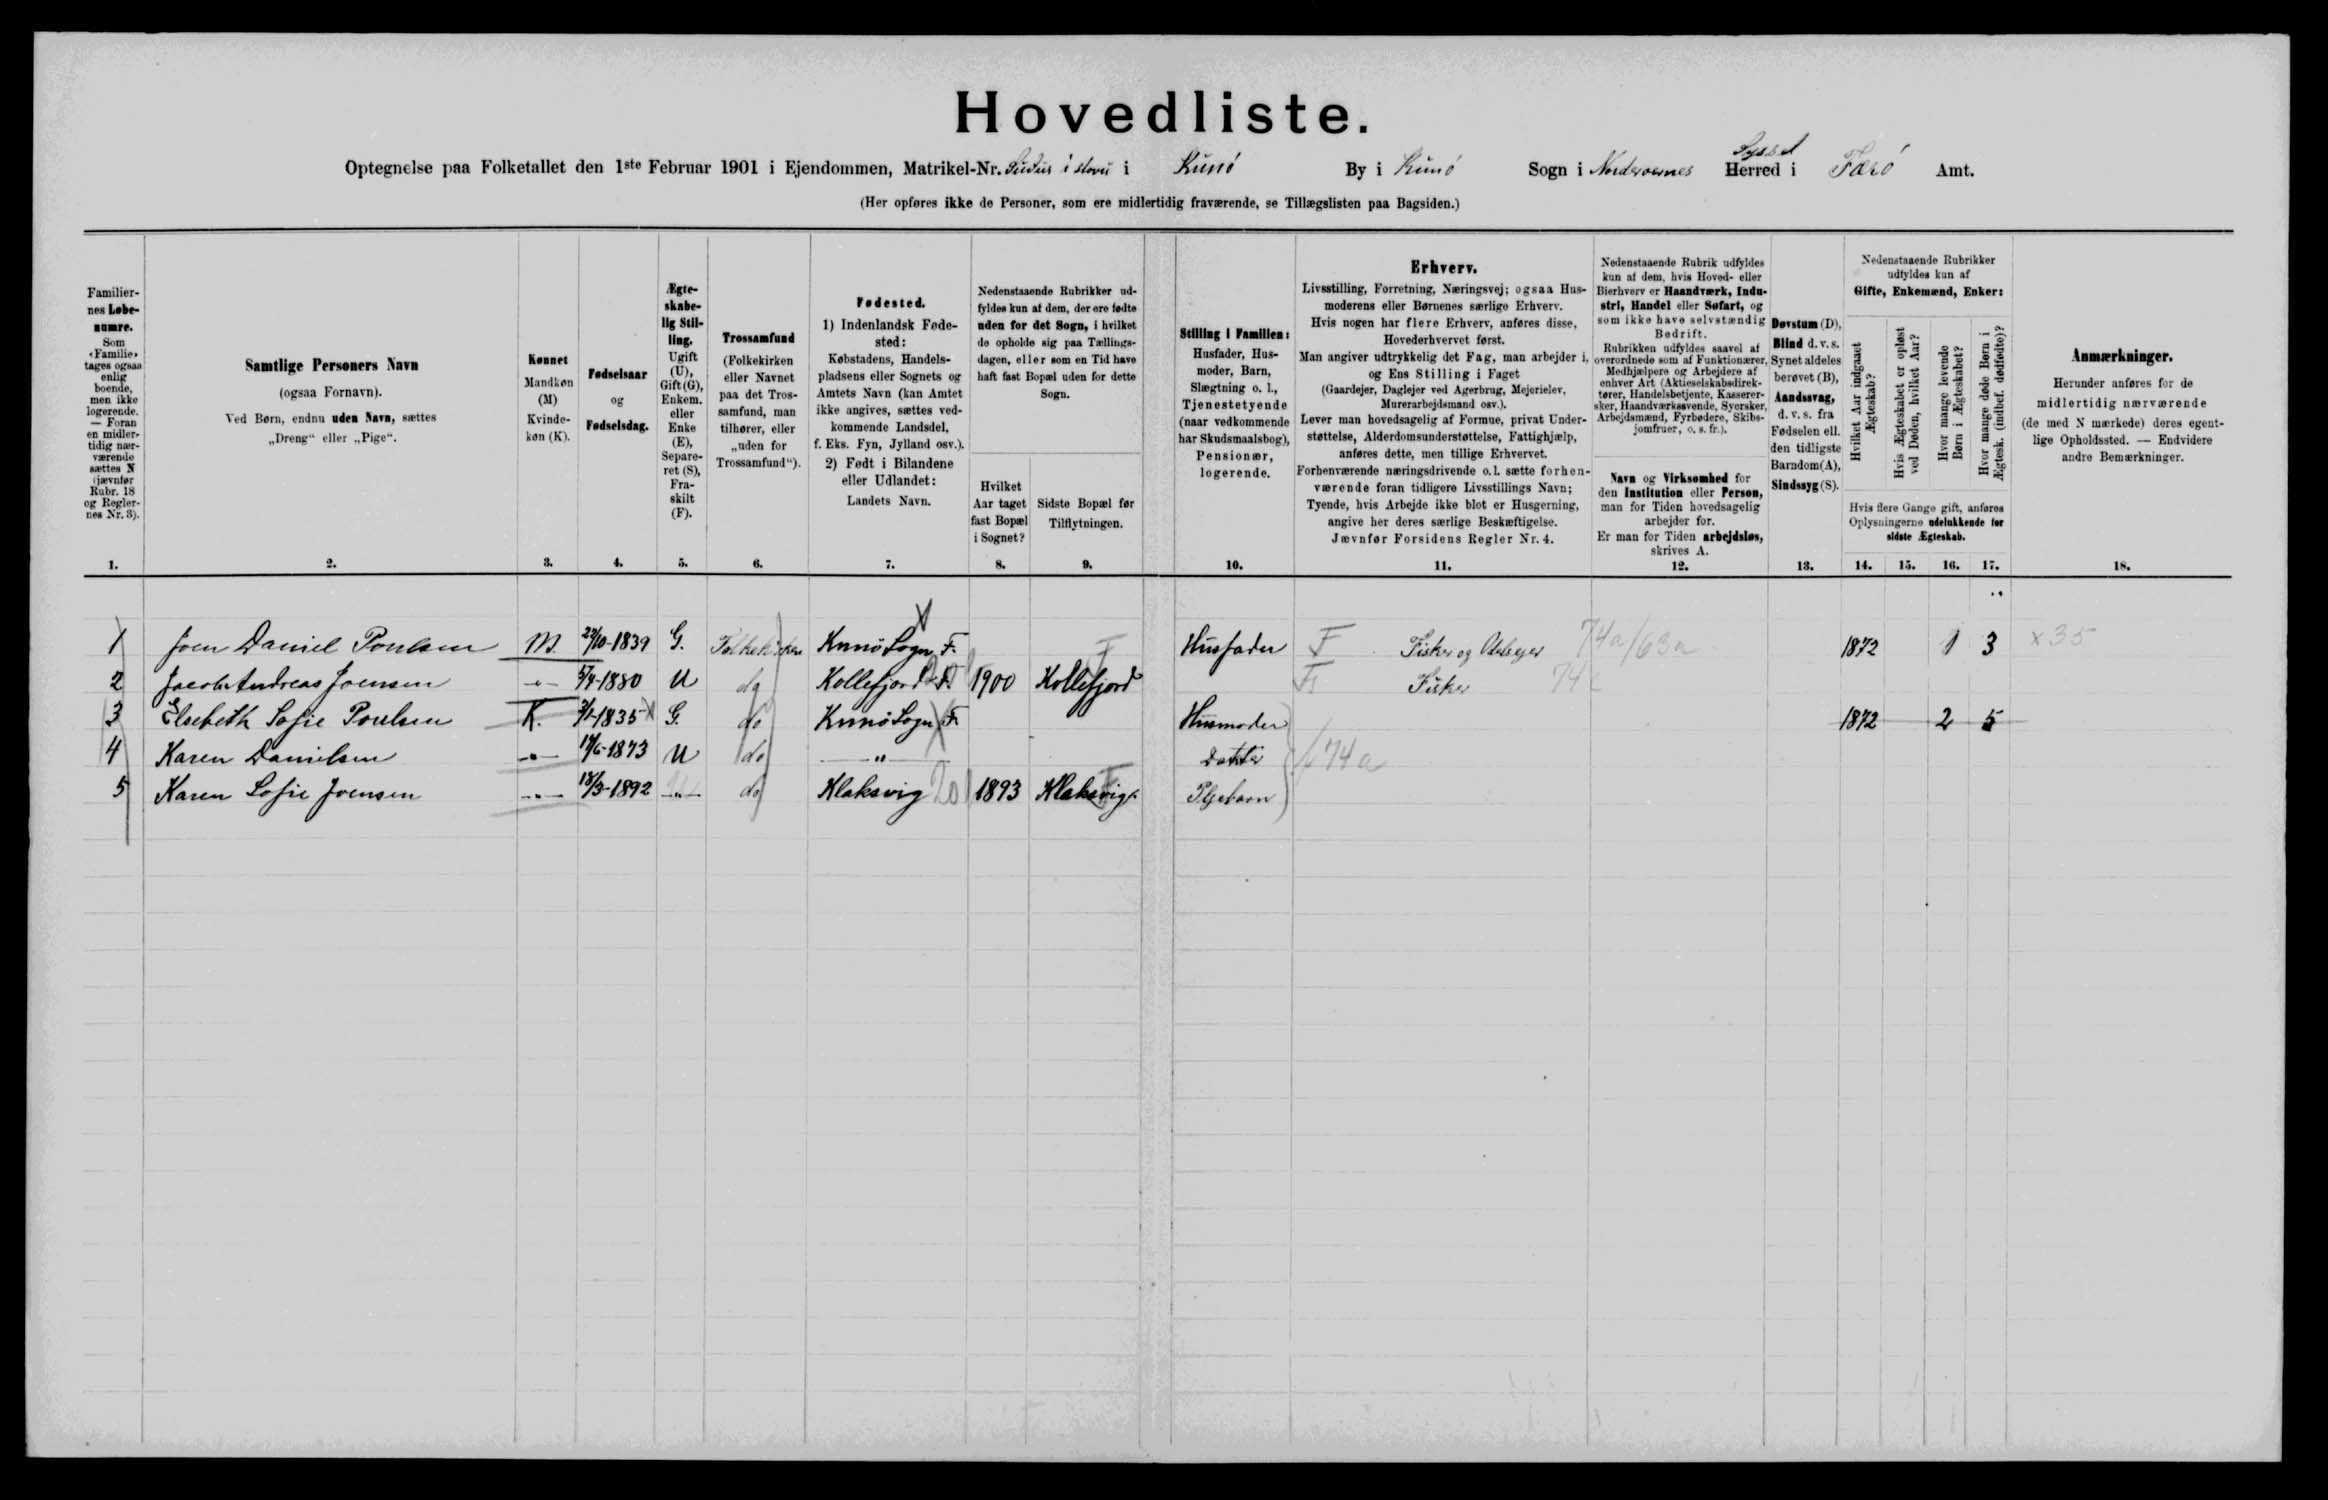 Hovedliste.
Optegnelse paa Folketallet den 1ste Februar 1901 i Ejendommen, Matrikel-Nr. Suðuri stovu i Kunö By i Kunö Sogn i Norderoernes Syssel Herred i Færö Amt.
(Her opføres ikke de Personer, som ere midlertidig fraværende, se Tillægslisten paa Bagsiden.)
Familier-
nes Løbe-
numre.
Som
«Familie»
tages ogsaa
enlig
boende,
men ikke
logerende.
— Foran
en midler-
tidig nær-
værende
sættes N
(jævnfør
Rubr. 18
og Regler-
nes Nr. 3).
1.
Samtlige Personers Navn
(ogsaa Fornavn).
Ved Børn, endnu uden Navn, sættes
„Dreng“ eller „Pige“.
2.
Kønnet
Mandkøn
(M)
Kvinde-
køn (K).
3.
Fødselsaar
og
Fødselsdag.
4.
Ægte-
skabe-
lig Stil-
ling.
Ugift
(U),
Gift (G),
Enkem.
eller
Enke
(E),
Separe-
ret (S),
Fra-
skilt
(F).
5.
Trossamfund
(Folkekirken
eller Navnet
paa det Tros-
samfund, man
tilhører, eller
„uden for
Trossamfund“).
6.
Fødested.
1) Indenlandsk Føde-
sted:
Købstadens, Handels-
pladsens eller Sognets og
Amtets Navn (kan Amtet
ikke angives, sættes ved-
kommende Landsdel,
f. Eks. Fyn, Jylland osv.).
2) Født i Bilandene
eller Udlandet:
Landets Navn.
7.
Nedenstaaende Rubrikker ud-
fyldes kun af dem, der ere fødte
uden for det Sogn, i hvilket
de opholde sig paa Tællings-
dagen, eller som en Tid have
haft fast Bopæl uden for dette
Sogn.
Hvilket
Aar taget
fast Bopæl
i Sognet?
8.
Sidste Bopæl før
Tilflytningen.
9.
Stilling i Familien:
Husfader, Hus-
moder, Barn,
Slægtning o. l.,
Tjenestetyende
(naar vedkommende
har Skudsmaalsbog),
Pensionær,
logerende.
10.
Erhverv.
Livsstilling, Forretning, Næringsvej; ogsaa Hus-
moderens eller Børnenes særlige Erhverv.
Hvis nogen har flere Erhverv, anføres disse,
Hovederhvervet først.
Man angiver udtrykkelig det Fag, man arbejder i,
og Ens Stilling i Faget
(Gaardejer, Daglejer ved Agerbrug, Mejerielev,
Murerarbejdsmand osv.).
Lever man hovedsagelig af Formue, privat Under-
støttelse, Alderdomsunderstøttelse, Fattighjælp,
anføres dette, men tillige Erhvervet.
Forhenværende næringsdrivende o.l. sætte forhen-
værende foran tidligere Livsstillings Navn;
Tyende, hvis Arbejde ikke blot er Husgerning,
angive her deres særlige Beskæftigelse.
Jævnfør Forsidens Regler Nr. 4.
11.
Nedenstaaende Rubrik udfyldes
kun af dem, hvis Hoved- eller
Bierhverv er Haandværk, Indu-
stri, Handel eller Søfart, og
som ikke have selvstændig
Bedrift.
Rubrikken udfyldes saavel af
overordnede som af Funktionærer,
Medhjælpere og Arbejdere af
enhver Art (Aktieselskabsdirek-
tører, Handelsbetjente, Kasserer-
sker, Haandværkssvende, Syersker,
Arbejdsmænd, Fyrbødere, Skibs-
jomfruer, o. s. fr.).
Navn og Virksomhed for
den Institution eller Person,
man for Tiden hovedsagelig
arbejder for.
Er man for Tiden arbejdsløs,
skrives A.
12.
Døvstum (D),
Blind d. v. s.
Synet aldeles
berøvet (B),
Aandssvag,
d. v. s. fra
Fødselen ell.
den tidligste
Barndom (A),
Sindssyg (S).
13.
Nedenstaaende Rubrikker
udfyldes kun af
Gifte, Enkemænd, Enker:
Hvilket Aar indgaaet
Ægteskab?
Hvis Ægteskabet er opløst
ved Døden, hvilket Aar?
Hvor mange levende
Børn i Ægteskabet?
Hvor mange døde Børn i
Ægtesk. (indbef. dødfødte)?
Hvis flere Gange gift, anføres
Oplysningerne udelukkende for
sidste Ægteskab.
14. 15. 16. 17.
Anmærkninger.
Herunder anføres for de
midlertidig nærværende
(de med N mærkede) deres egent-
lige Opholdssted. — Endvidere
andre Bemærkninger.
18.
1 Joen Daniel Poulsen M. 22/10-1839 G. Folkekirken Kunö Sogn F. Husfader F Fisker og Udelejer 74a/63a 1872 1 3 x 35
2 Jacob Andreas Joensen -"- 5/4-1880 U do Kollefjord F. 20 1900 Kollefjord F F Fisker 74
3 Elsebeth Sofie Poulsen K. 3/1-1835 G. do Kunö Sogn F. Husmoder 1872 2 5
4 Karen Danielsen -"- 17/6-1873 U do -"- Datter 74a
5 Karen Sofie Joensen -"- 18/3-1892 -"- do Klaksvig 20 1893 Klaksvig F Plejebarn